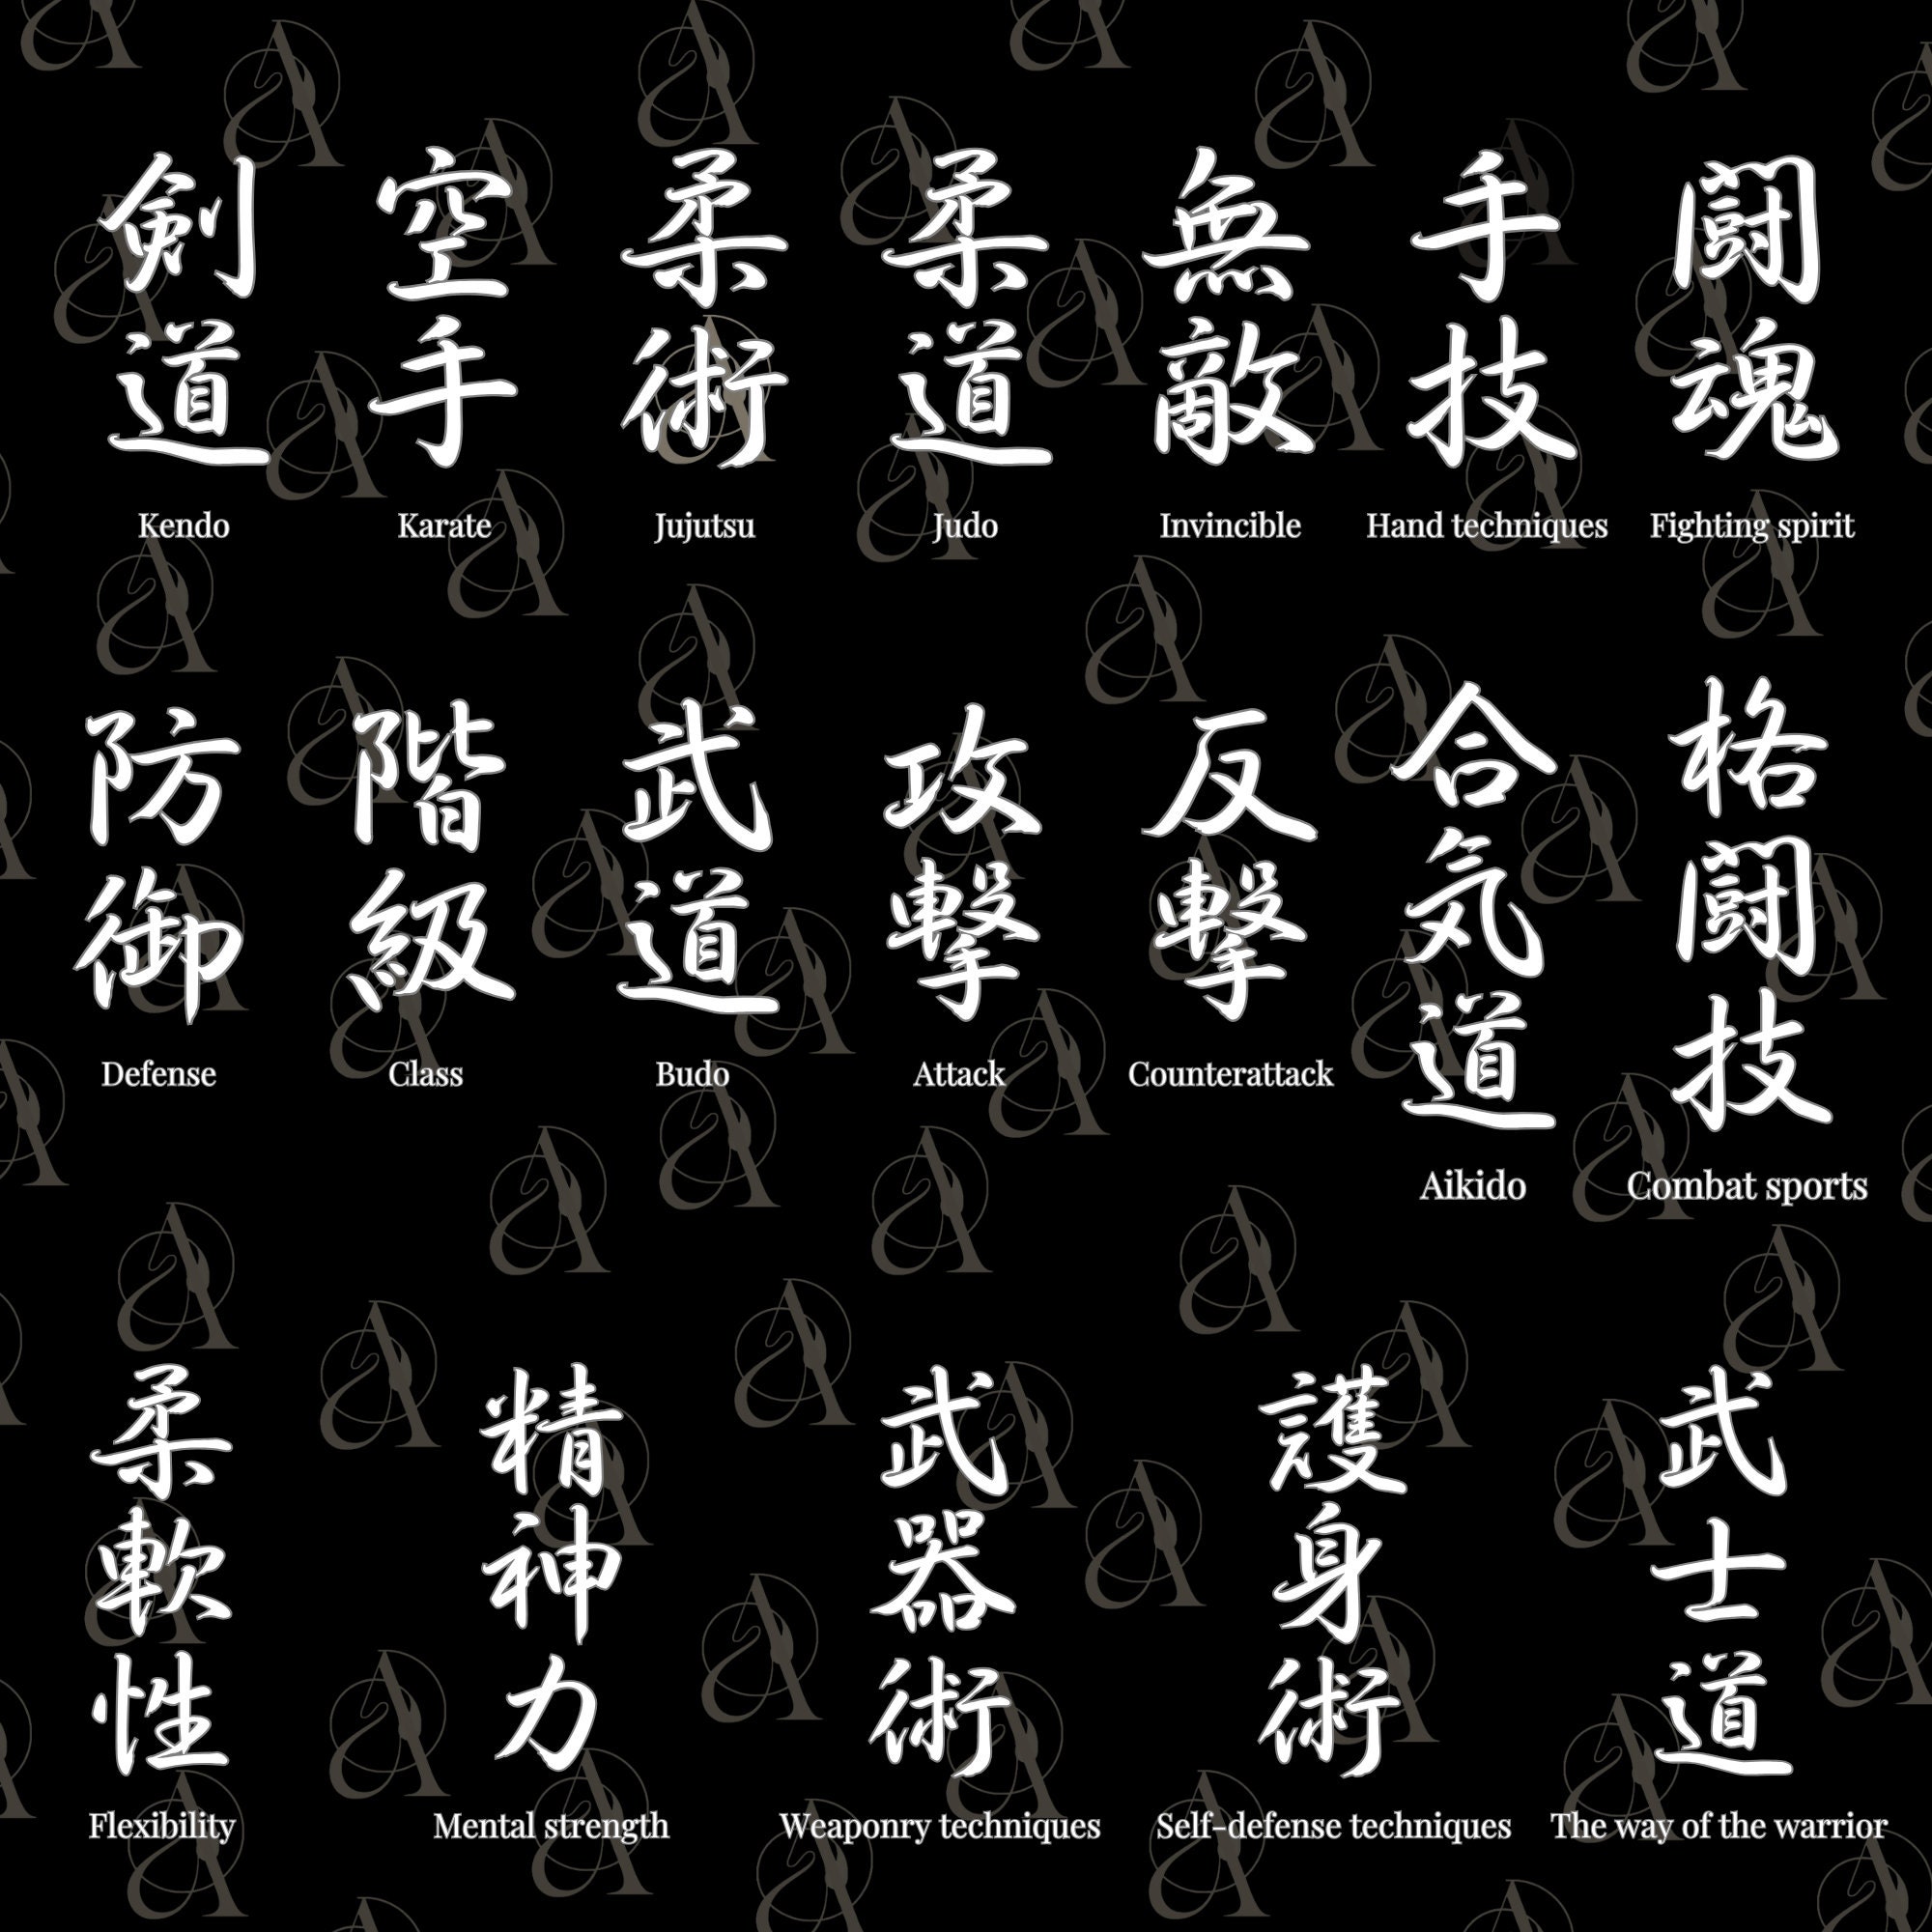 剣道
Kendo
空手
Karate
柔術
Jujutsu
柔道
Judo
無敵
Invincible
手技
Hand techniques
闘魂
Fighting spirit
防御
Defense
階級
Class
武道
Budo
攻撃
Attack
反撃
Counterattack
合気道
Aikido
格闘技
Combat sports
柔軟性
Flexibility
精神力
Mental strength
武器術
Weaponry techniques
護身術
Self-defense techniques
武士道
The way of the warrior